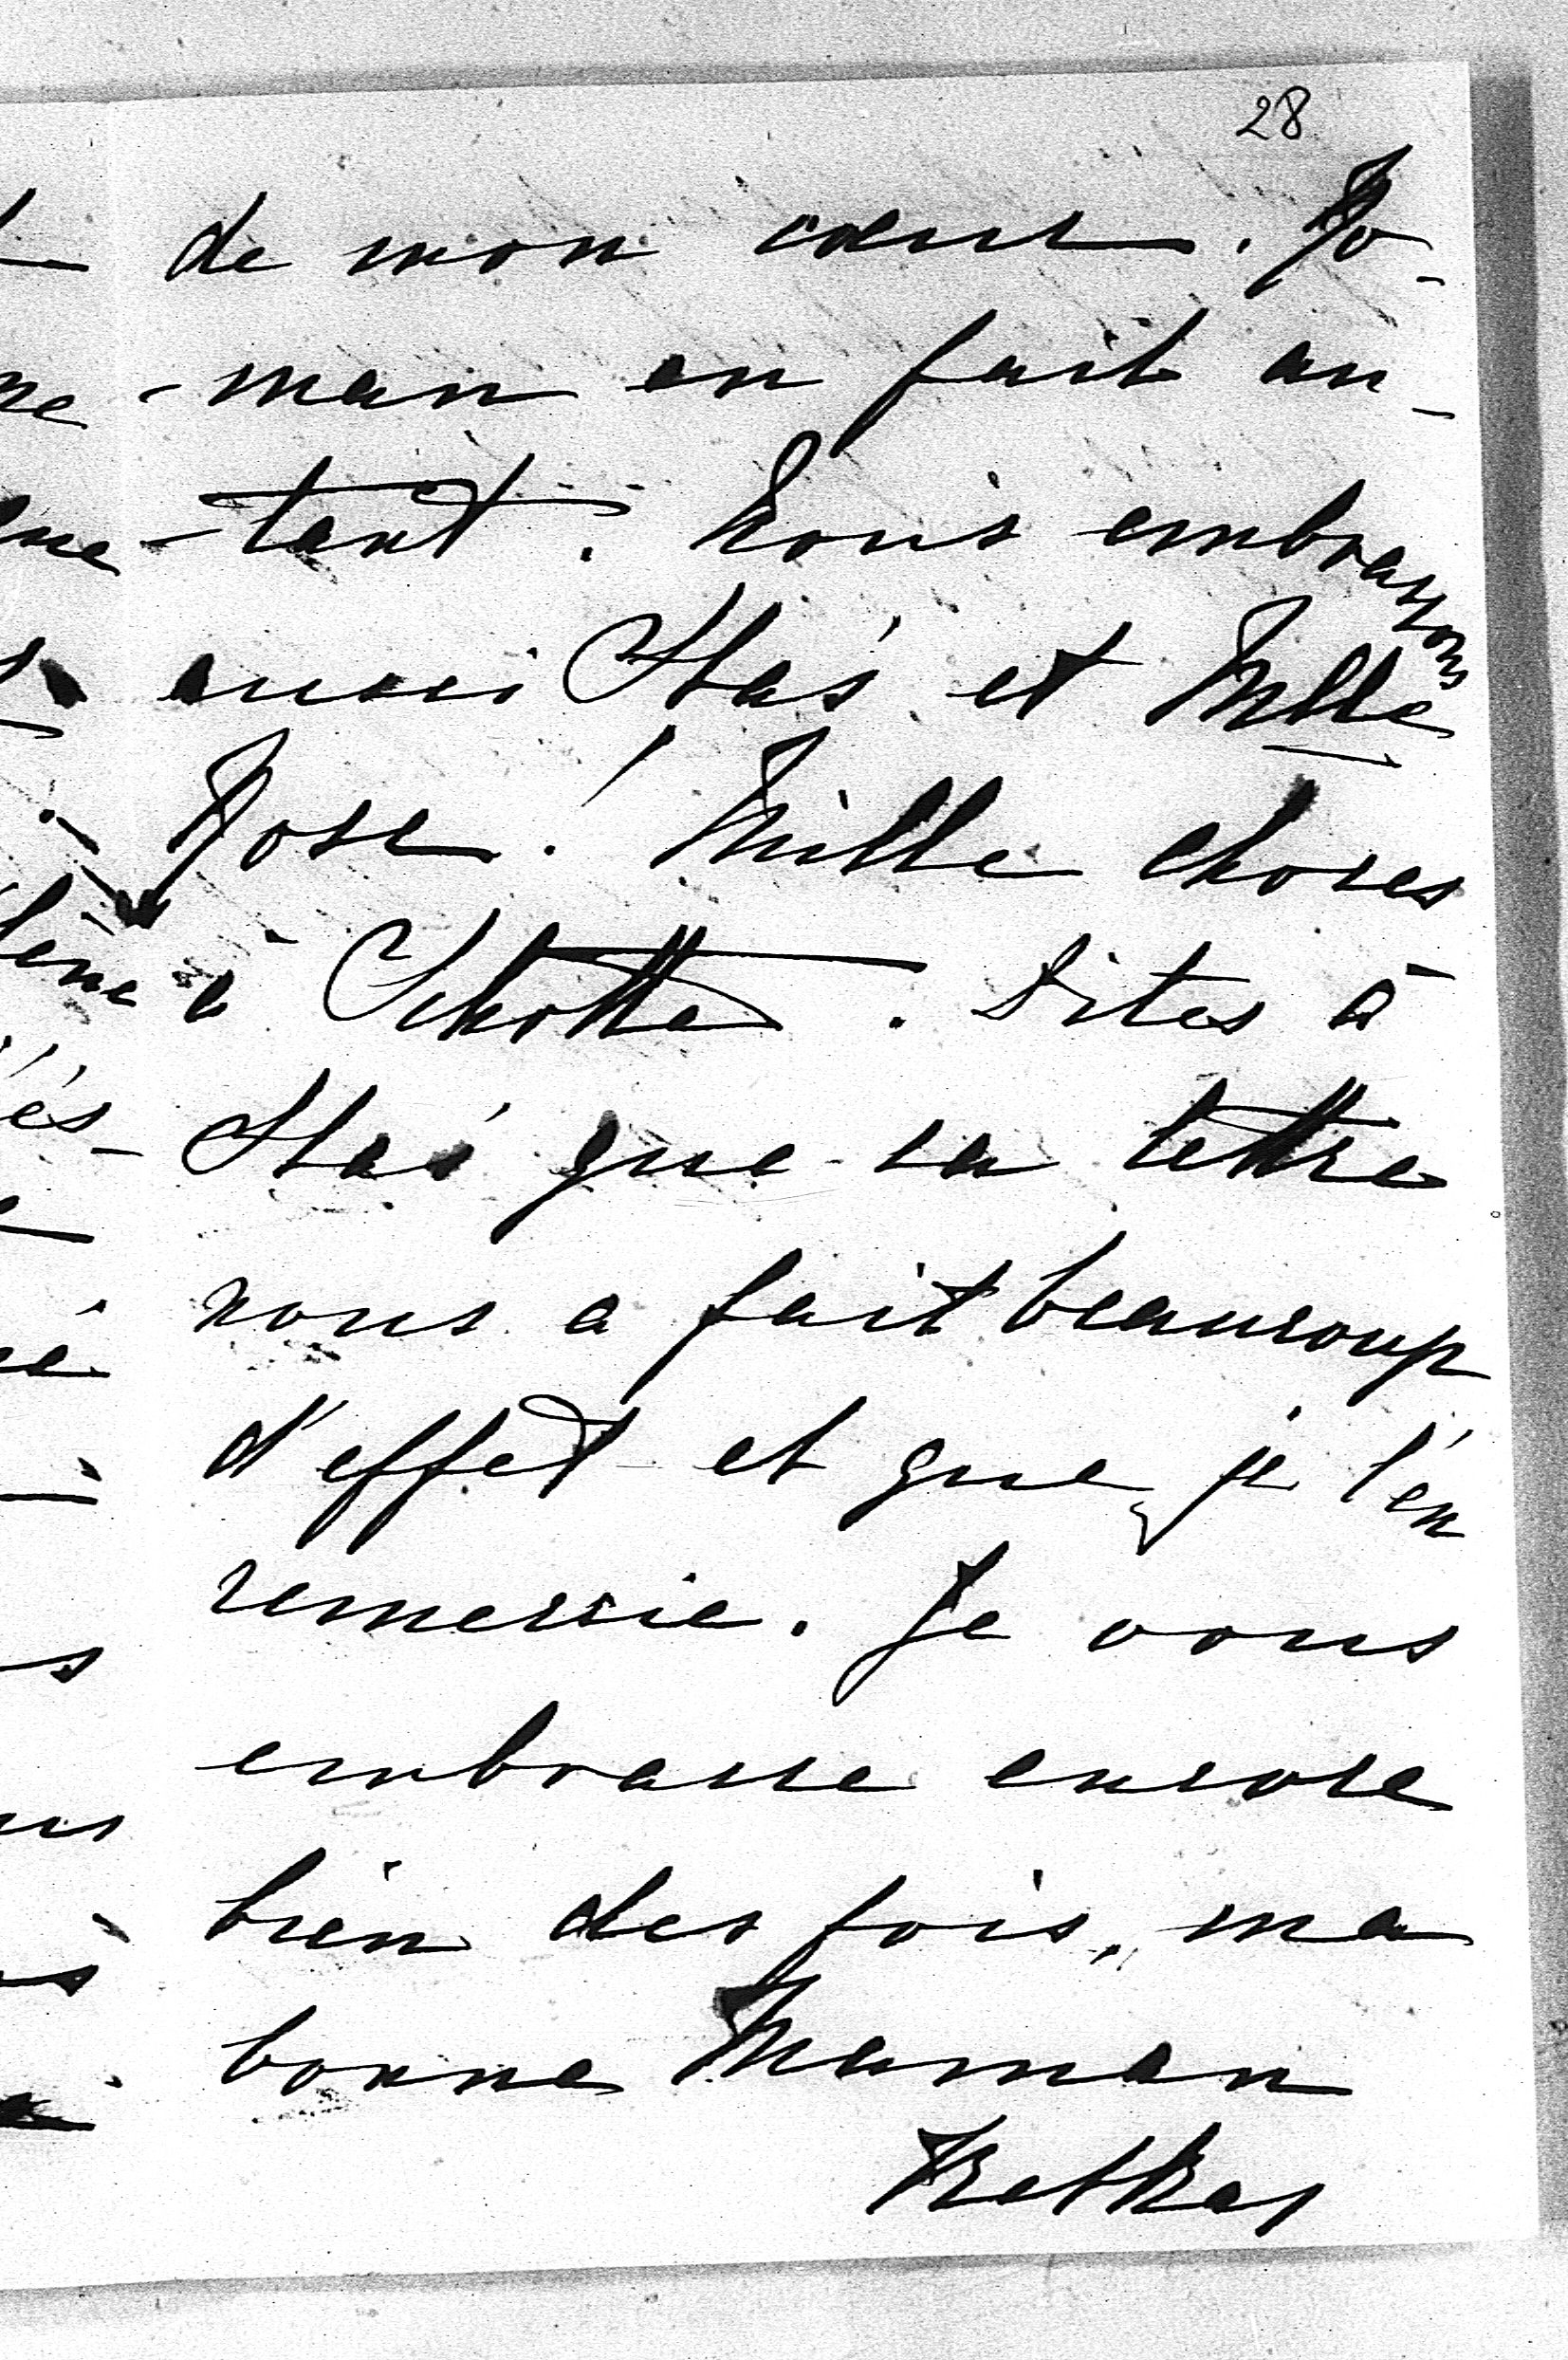 28
de mon cœur. Ro-
-man en fait au-
-tant. Nous embrassons
aussi Staś et Mlle
Rose! Mille choses
à Schotte. Dites à
Staś que sa lettre
nous a fait beaucoup
d'effet et que je l'en
remercie. Je vous
embrasse encore
bien des fois, ma
bonne Maman